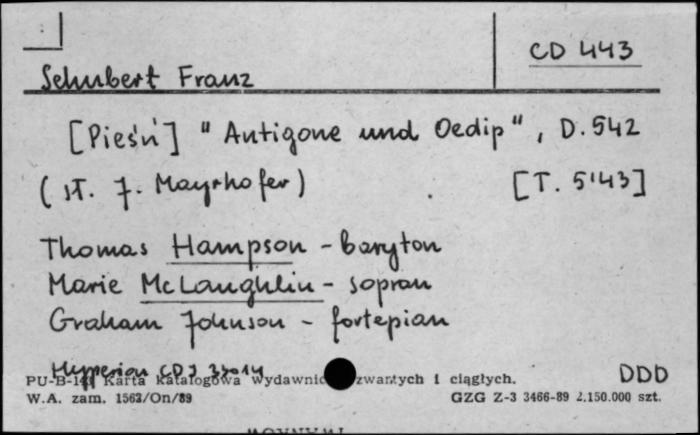 CD 443
Schubert Franz
[Pieśń] " Antigone und Oedip", D. 542
(sł. J. Mayrhofer) [T. 5'43]
Thomas Hampson - baryton
Marie McLaughlin - sopran
Graham Johnson - fortepian
Hyperion CDJ 33014 DDD
PU-B-141 Karta katalogowa wydawnic zwartych i ciągłych.
W.A. zam. 1563/On/89 GZG Z-3 3466-89 2.150.000 szt.